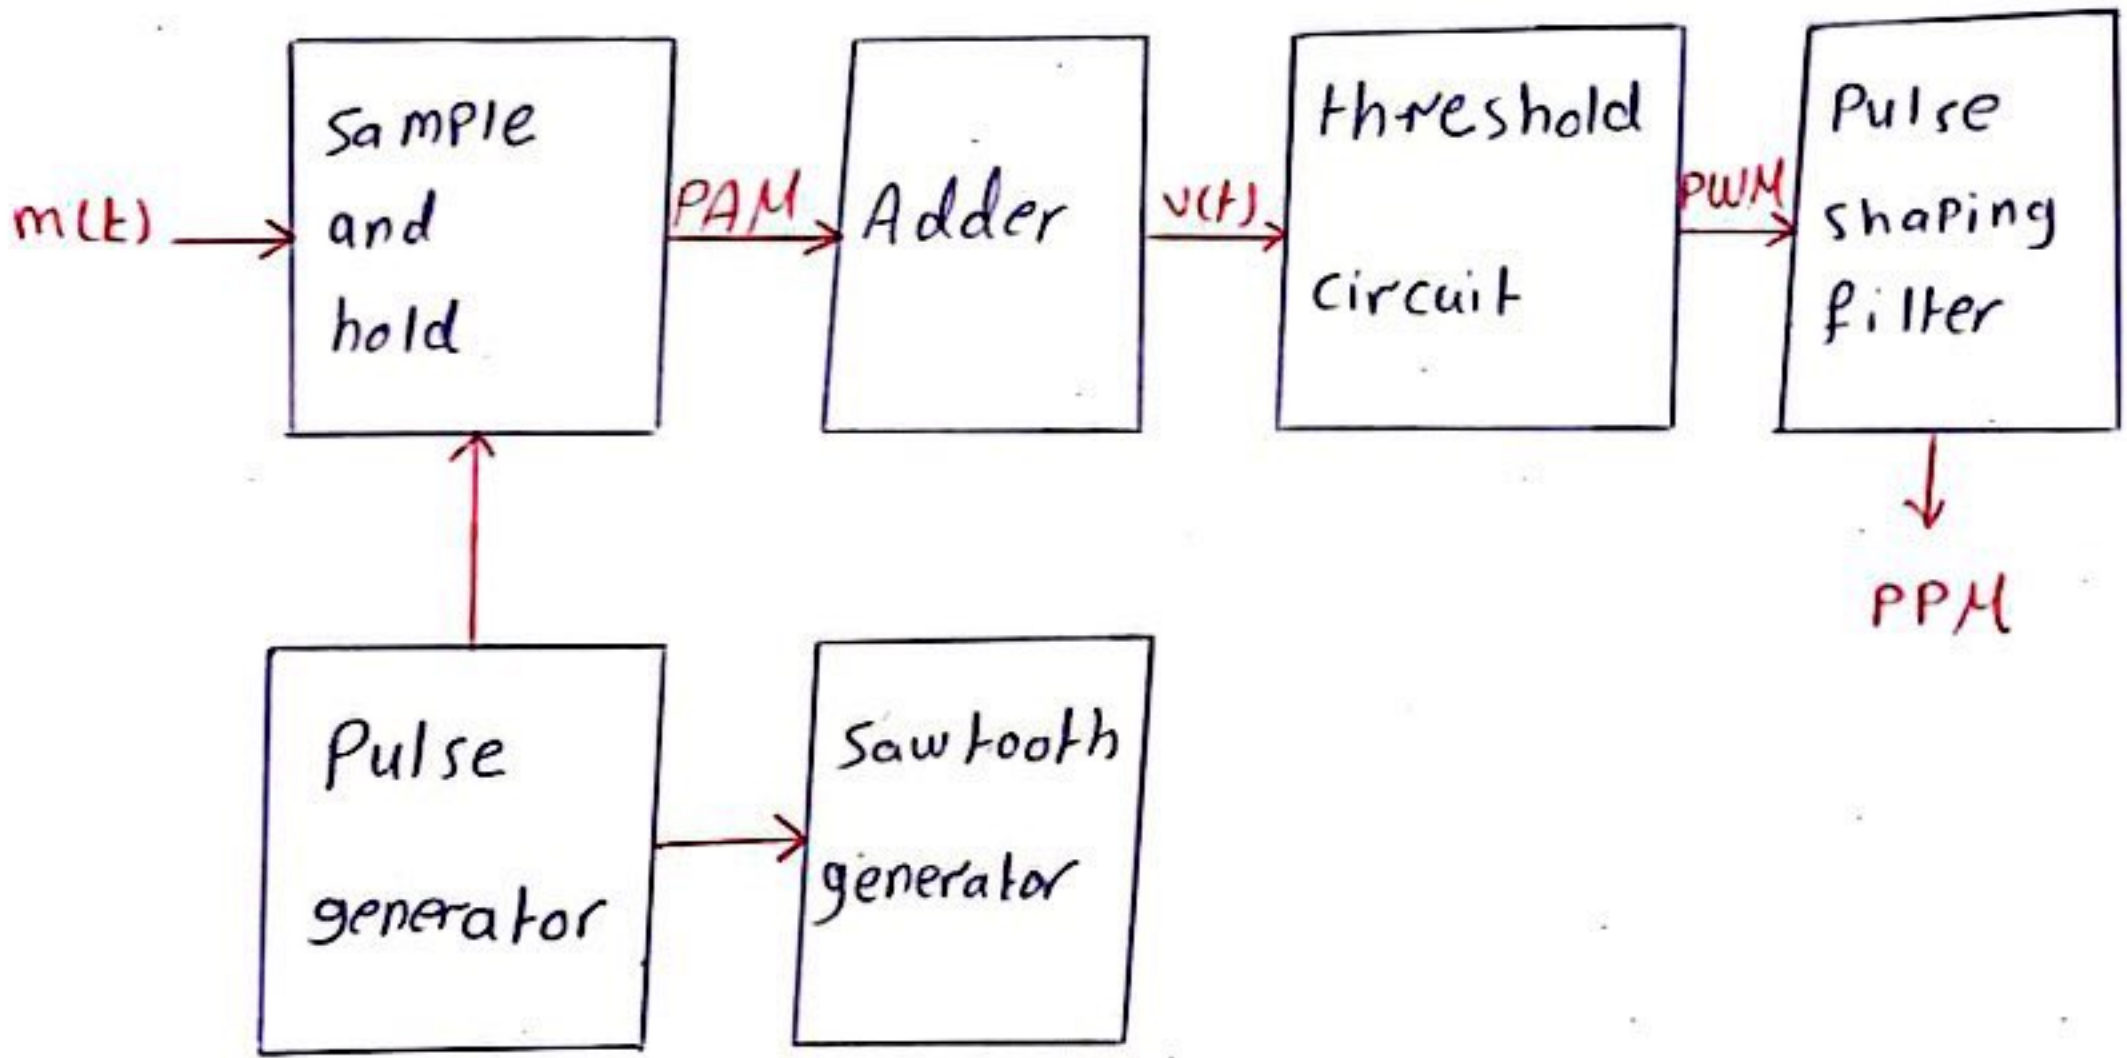 m(t)
Sample
and
hold
PAM
Adder
v(t)
threshold
circuit
PWM
Pulse
shaping
filter
PPM
Pulse
generator
Sawtooth
generator